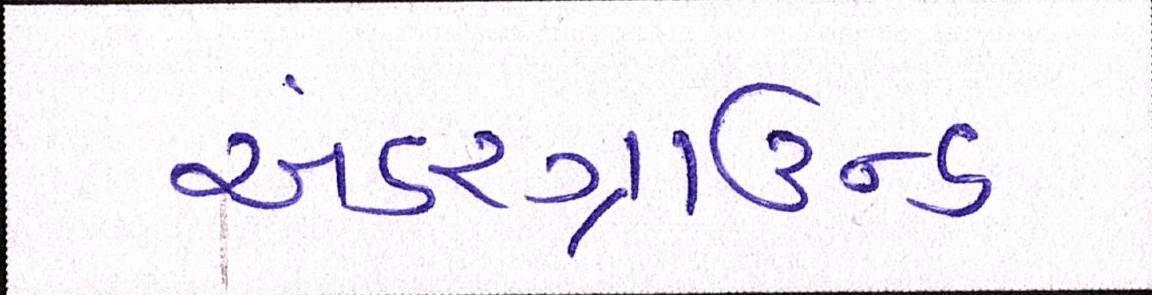 અંડરગ્રાઉન્ડ